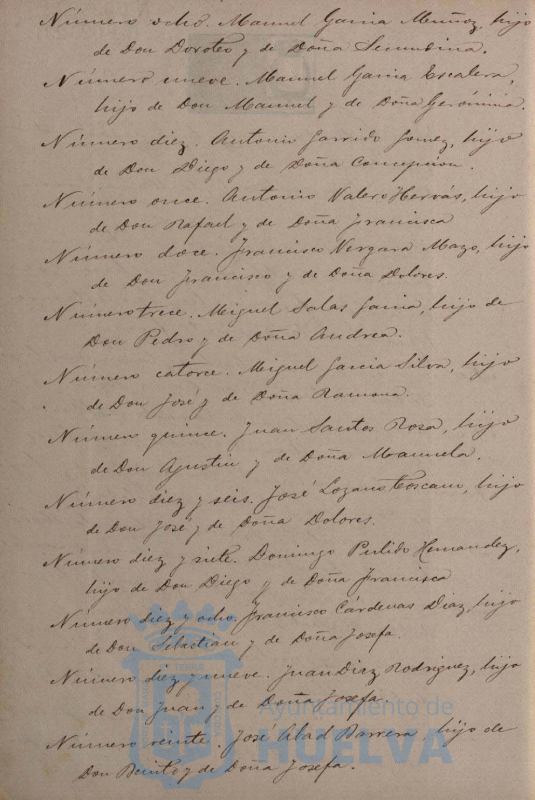 Número ocho. Manuel Garcia Muñoz, hijo
de Don Doroteo y de Doña Secundina.
Número nueve. Manuel Garcia Escalera,
hijo de Don Manuel y de Doña Gerónima.
Número diez. Antonio Garrido Gomez, hijo
de Don Diego y de Doña Concepcion.
Número once. Antonio Valero Hervás, hijo
de Don Rafael y de Doña Francisca
Número doce. Francisco Vergara Mazo, hijo
de Don Francisco y de Doña Dolores.
Número trece. Miguel Salas Garcia, hijo de
Don Pedro y de Doña Andrea.
Número catorce. Miguel Garcia Silva, hijo
de Don José y de Doña Ramona.
Número quince. Juan Santos Rosa, hijo
de Don Agustin y de Doña Manuela.
Número diez y seis. José Lozano Toscano, hijo
de Don José y de Doña Dolores.
Número diez y siete. Domingo Pulido Hernandez,
hijo de Don Diego y de Doña Francisca
Número diez y ocho. Francisco Cárdenas Diaz, hijo
de Don Sebastian y de Doña Josefa.
Número diez y nueve. Juan Diaz Rodriguez, hijo
de Don Juan y de Doña Josefa.
Número veinte. José Abad Barrera hijo de
Don Benito y de Doña Josefa.
Ayuntamiento de
HUELVA